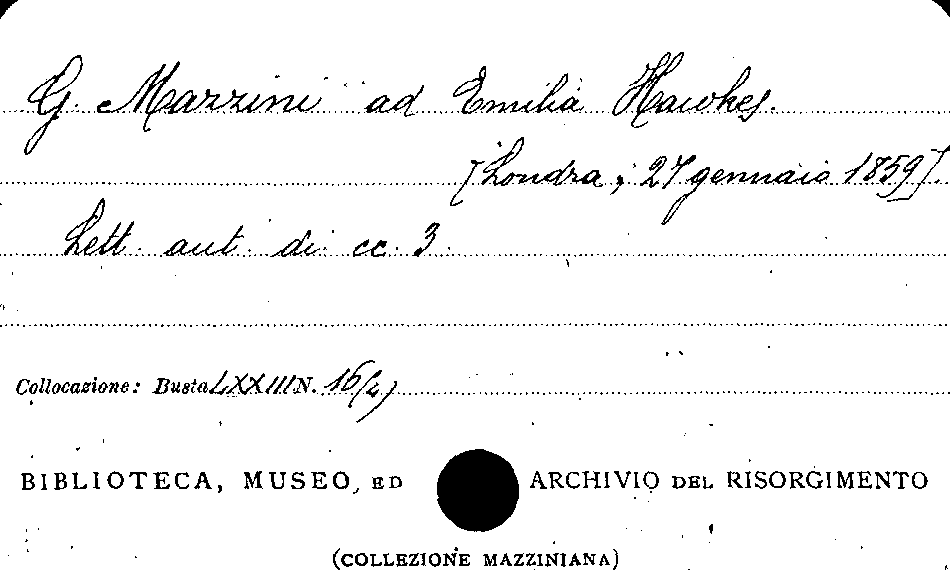 G. Mazzini ad Emilia Hawkes.
[Londra, 27 gennaio 1859].
Lett. aut. di cc. 3.
Collocazione: Busta LXXIII N. 16(2)
BIBLIOTECA, MUSEO, ED ARCHIVIO DEL RISORGIMENTO
(COLLEZIONE MAZZINIANA)